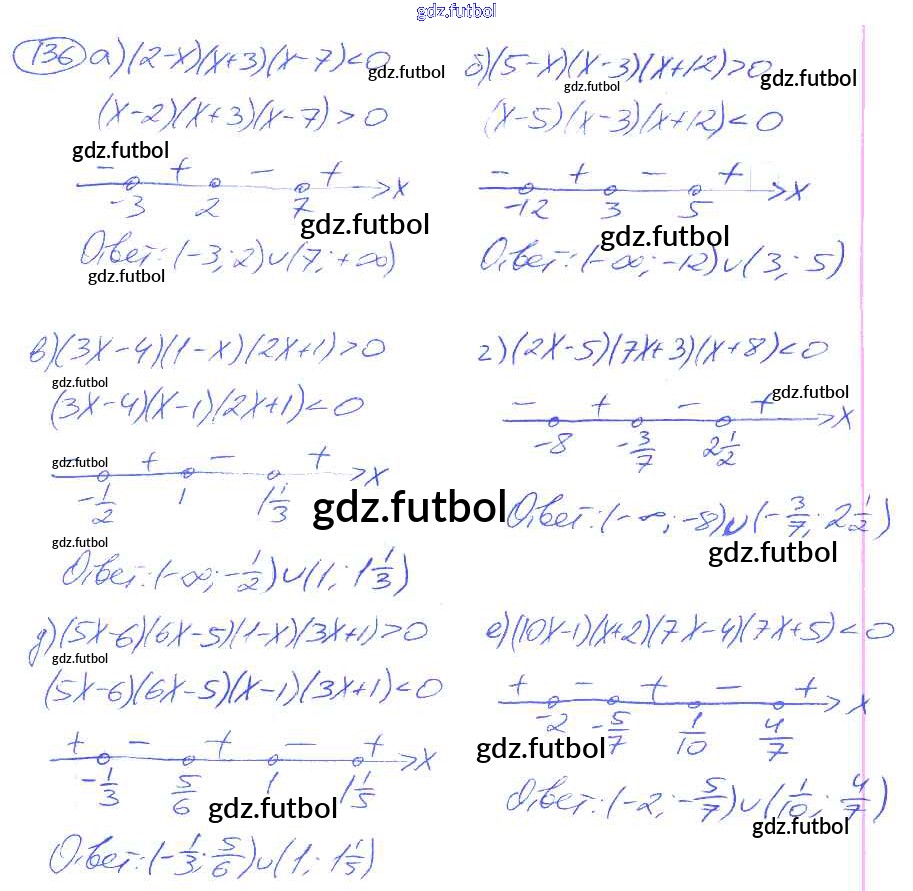 gdz.futbol
136 а) (2-x)(x+3)(x-7)<0
gdz.futbol
(x-2)(x+3)(x-7)>0
gdz.futbol
- + - +
-3 2 7 x
gdz.futbol
Ответ: (-3; 2)∪(7; +∞)
gdz.futbol
б) (5-x)(x-3)(x+12)>0
gdz.futbol
gdz.futbol
(x-5)(x-3)(x+12)<0
- + - +
-12 3 5 x
gdz.futbol
Ответ: (-∞; -12)∪(3; 5)
в) (3x-4)(1-x)(2x+1)>0
gdz.futbol
(3x-4)(x-1)(2x+1)<0
gdz.futbol
- + - +
-1/2 1 1 1/3 x
gdz.futbol
gdz.futbol
Ответ: (-∞; -1/2)∪(1; 1 1/3)
г) (2x-5)(7x+3)(x+8)<0
gdz.futbol
- + - +
-8 -3/7 2 1/2 x
Ответ: (-∞; -8)∪(-3/7; 2 1/2)
gdz.futbol
д) (5x-6)(6x-5)(1-x)(3x+1)>0
gdz.futbol
(5x-6)(6x-5)(x-1)(3x+1)<0
+ - + - +
-1/3 5/6 1 1 1/5 x
gdz.futbol
Ответ: (-1/3; 5/6)∪(1; 1 1/5)
е) (10x-1)(x+2)(7x-4)(7x+5)<0
+ - + - +
-2 -5/7 1/10 4/7 x
gdz.futbol
Ответ: (-2; -5/7)∪(1/10; 4/7)
gdz.futbol